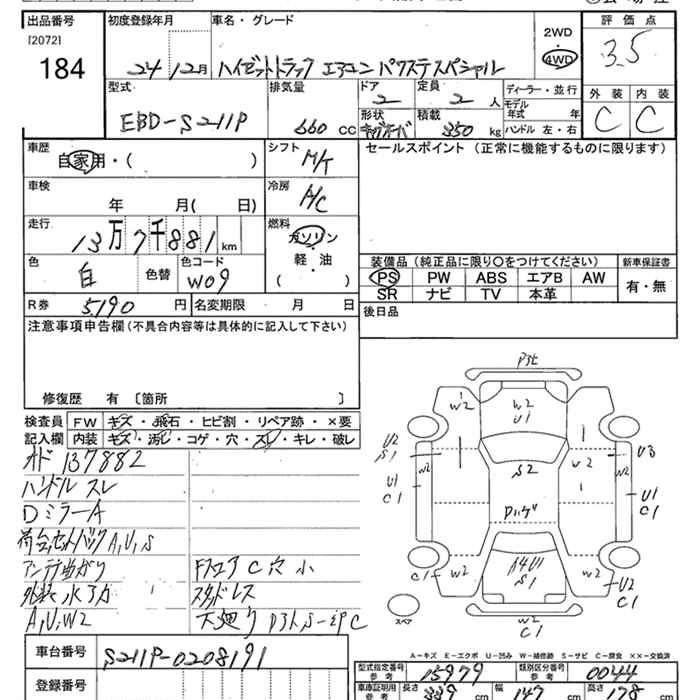 出品番号 初度登録年月 車名・グレード 評価点
[2072]
184
24 12月 ハイゼットトラック エアコン パワステスペシャル
2WD
4WD
3.5
型式 排気量 ドア 定員 ディーラー・並行 外装 内装
EBD-S211P 660 cc 2 2 人 モデル年式 年 C C
形状 積載 350 kg ハンドル 左・右
車歴 自家用・( ) シフト M/T セールスポイント (正常に機能するものに限ります)
車検 年 月( 日) 冷房 A/C
走行 13万7千881km 燃料 ガソリン
軽・油
( )
色 白 色替 色コード W09
装備品 (純正品に限り○をつけてください) 新車保証書
PS PW ABS エアB AW 有・無
SR ナビ TV 本革
R券 5190 円 名変期限 月 日 後日品
注意事項申告欄 (不具合内容等は具体的に記入して下さい)
修復歴 有 〔箇所 〕
検査員 FW キズ・飛石・ヒビ割・リペア跡・×要
記入欄 内装 キズ・汚レ・コゲ・穴・スレ・キレ・破レ
オド 137882
ハンドル スレ
DミラーA
荷台、セットバック A,U,S
アンテナ曲がり FフロアC穴小
外装水アカ スタッドレス
A,U,W2 下廻り
P3ヒ
W2 W2 U1
U2 S1 W2 S2 W2 W2 U3
U1 C1 U1 C1
Dハゲ
C1 W2 A4U1 S1 W2 U2 C1
スペア W2 C1
A-キズ E-エクボ U-凹み W-補修跡 S-サビ C-腐食 ××-交換済
車台番号 S211P-0208191
型式指定番号 参考 15979 類別区分番号 参考 0044
登録番号
車庫証明用 参考 長さ 339 cm 幅 147 cm 高さ 178 cm